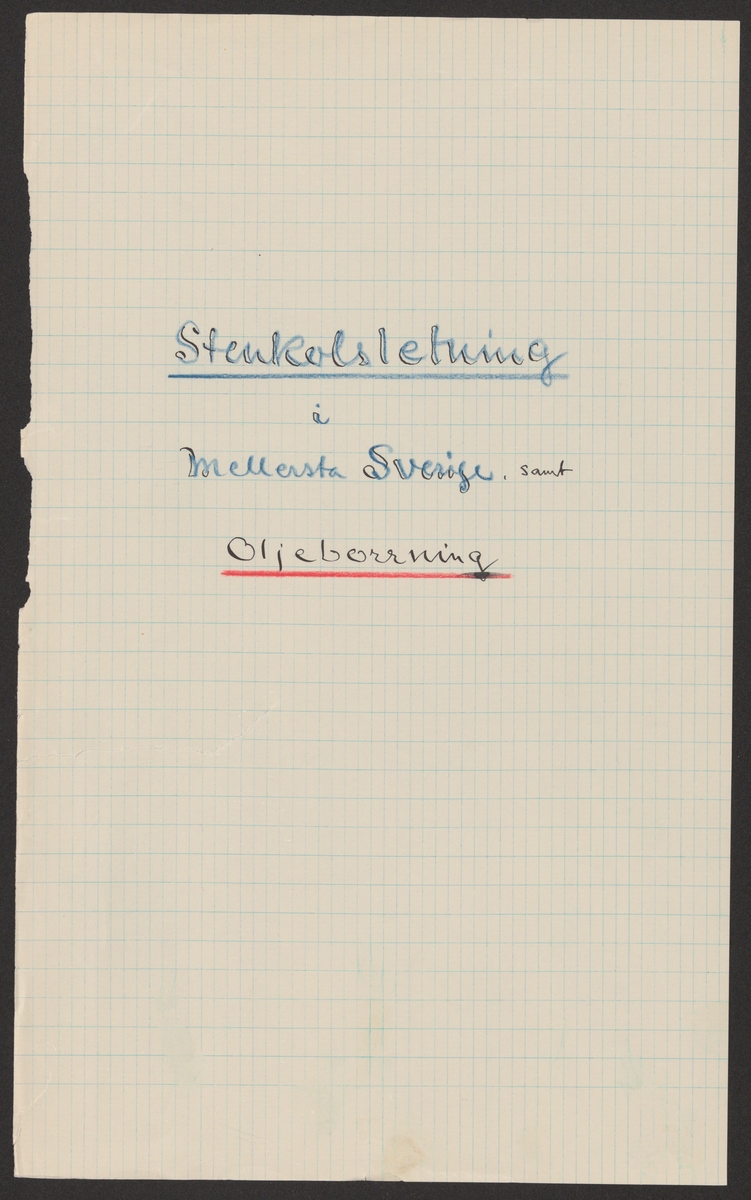 Stenkolsletning
i
Mellersta Sverige. samt
Oljeborrning